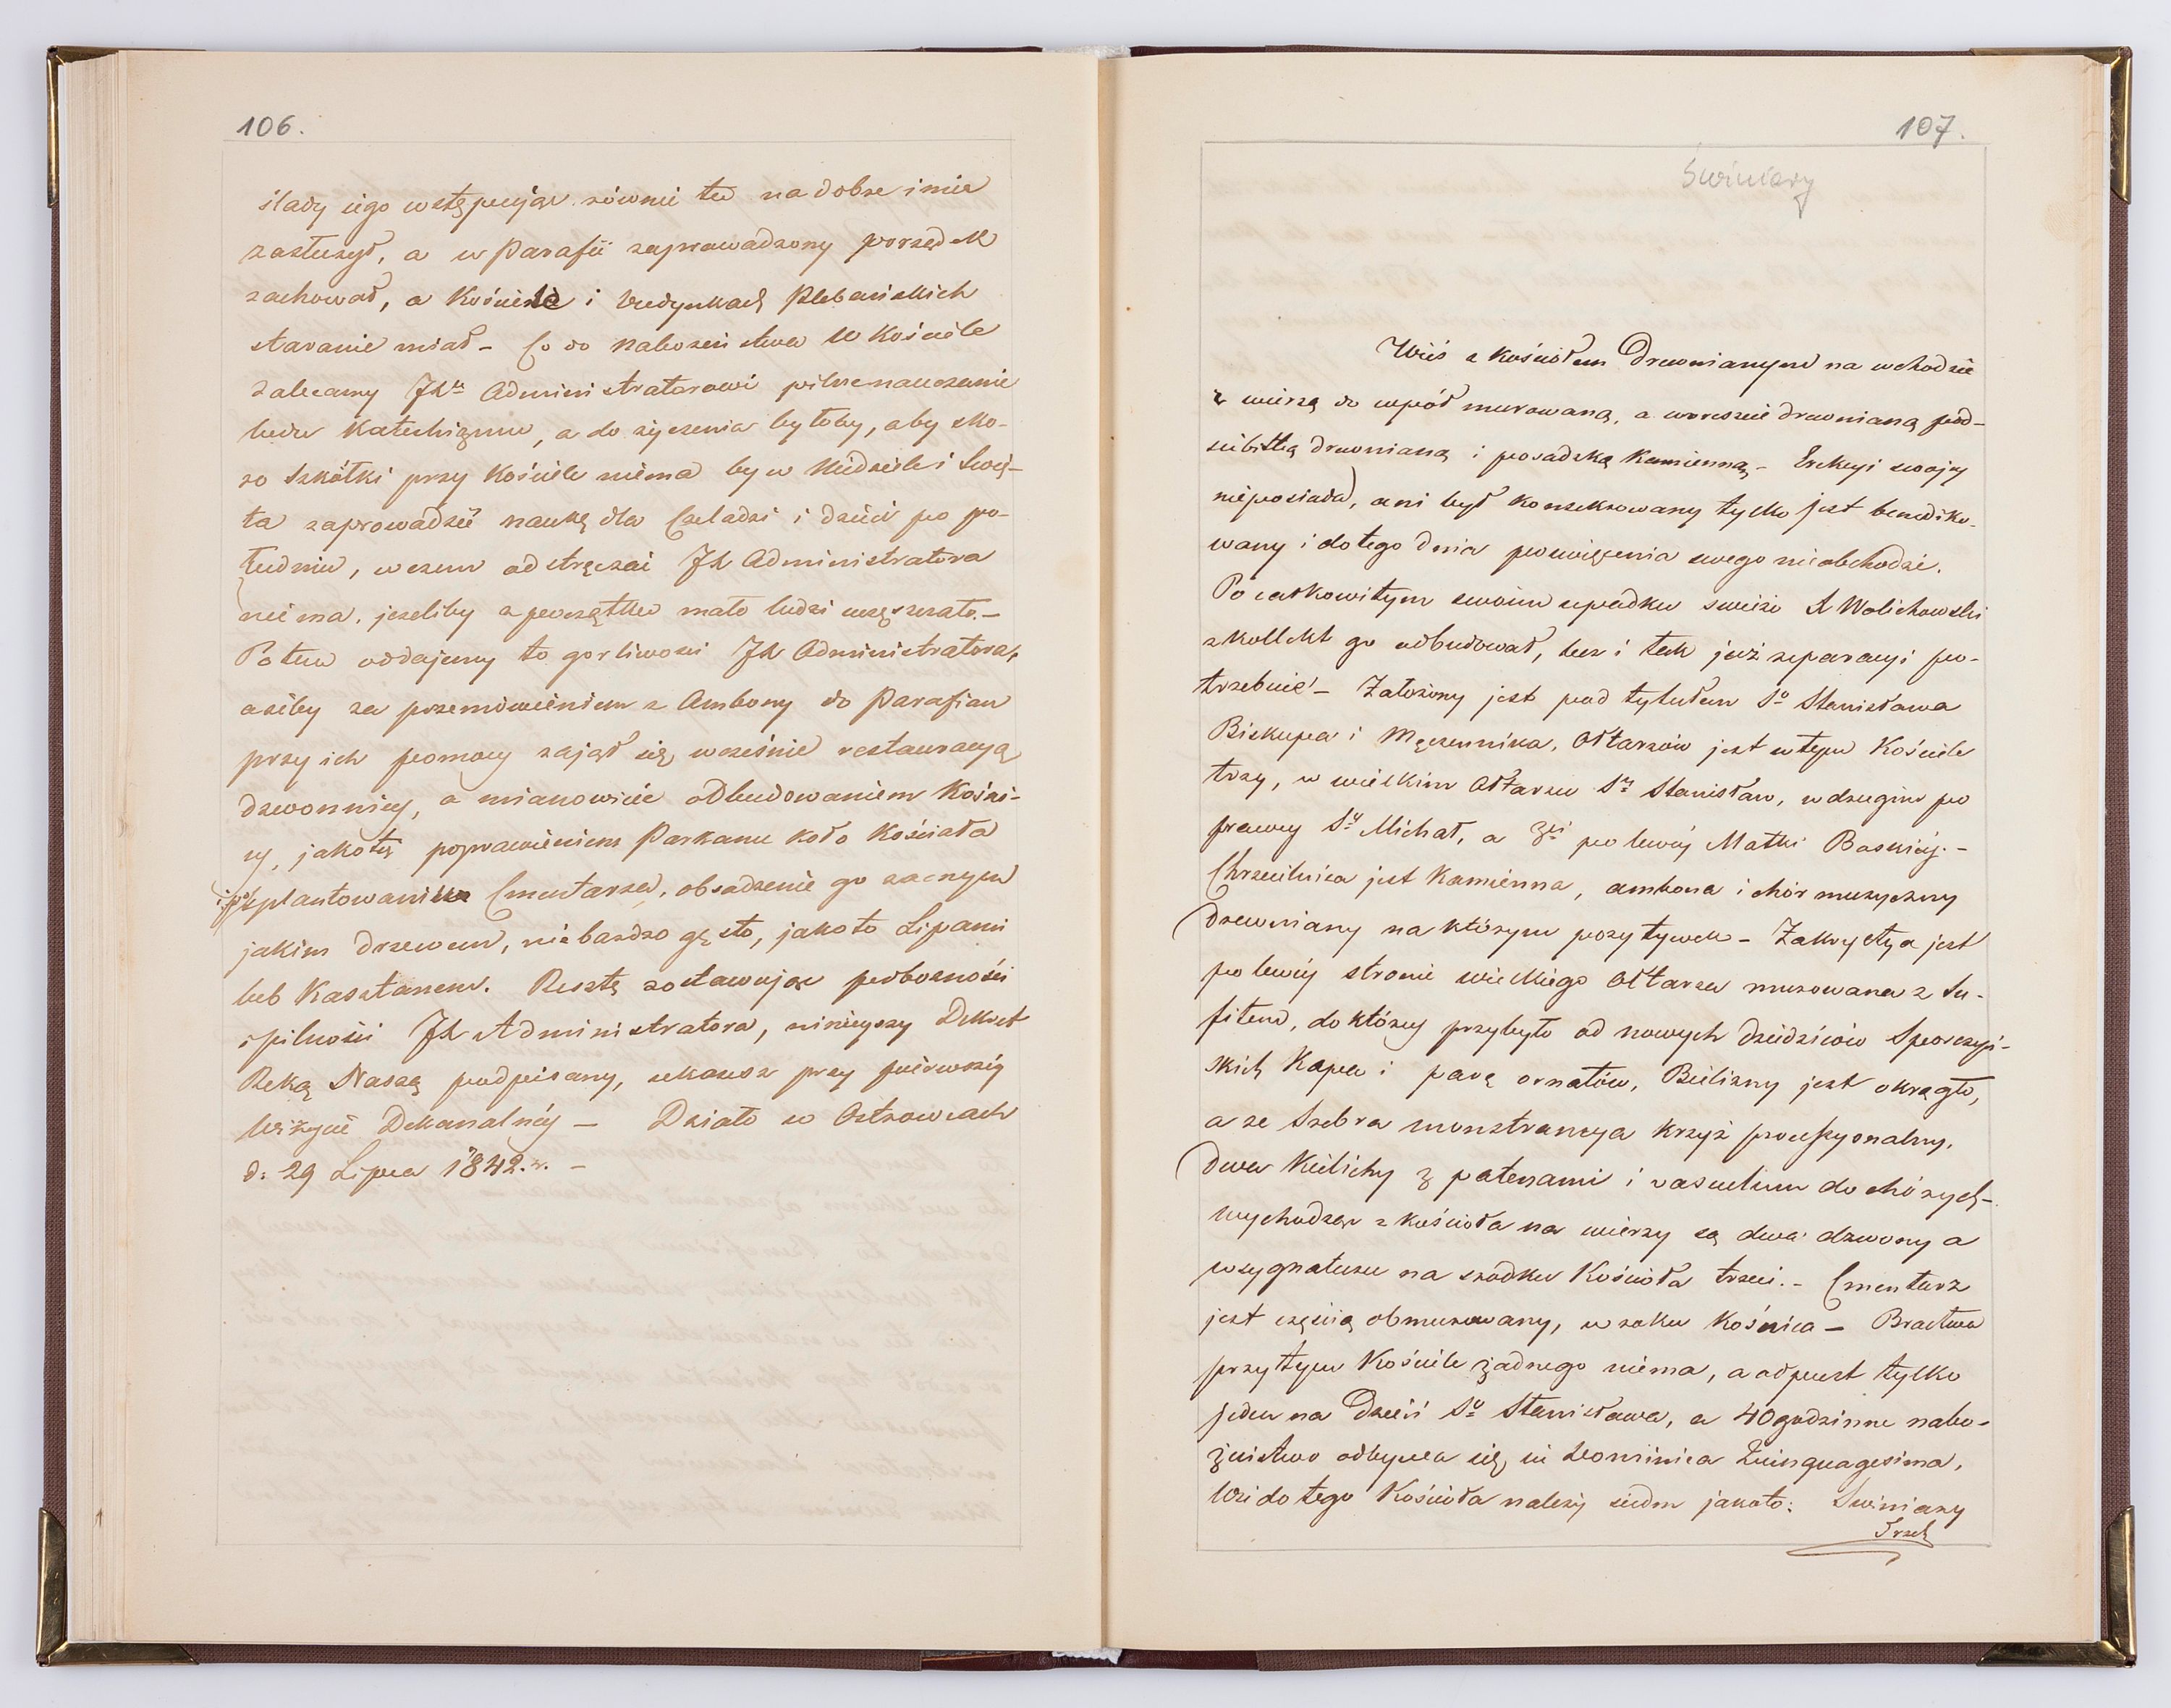 106.
ślady iego wstępując równie też na dobre imie
zasłużył, a w Parafii zaprowadzony porządek
zachował, o Kościele i budynkach Plebańskich
staranie miał – Co do nabożeństwa w Kościele
zalecamy JX Administratorowi pilne nauczanie
ludu Katechizmu, a do życzenia byłoby, aby sko-
ro szkółki przy Kościele niema by w Niedziele i Swię-
ta zaprowadził naukę dla Czeladzi i dzieci po po-
łudniu, w czem odstręczać JX Administratora
nie ma, jeżeliby z początku mało ludzi uczęszczało. –
Potem oddajemy to gorliwości JX Administratora,
ażeby za przemówieniem z Ambony do Parafian
przy ich pomocy zajął się wcześnie restauracyą
dzwonnicy, a mianowicie odbudowaniem Kośni-
cy, jakoteż poprawieniem Parkanu koło Kościoła
splantowanie Cmentarza, obsadzenie go zacnym
jakim drzewem, nie bardzo gęsto, jako to Lipami
lub Kasztanem. Resztę zostawując pobożności
i pilności JX Administratora, niniejszy Dekret
Ręką Naszą podpisany, ukażesz przy pierwszéy
Wizycie Dekanalnéy – Działo w Ostrowcach
d: 29 Lipca 1842. r. –
107.
Swiniary
Wieś z kościołem Drewnianym na wchodzie
z wieżą do wpół murowaną, a wreszcie drewnianą pod-
siebitką drewnianą i posadzką Kamienną – Erekcyi swojey
nieposiada, ani był Konsekrowany tylko jest benediko-
wany i do tego dnia poswięcenia swego nieobchodzi.
Po całkowitym swoim upadku swieżo X Wolichowski
z kollekt go odbudował, lecz i tak już reparacyi po-
trzebuie – Założony jest pod tytułem Sº Stanisława
Biskupa i Męczennika, Ołtarzów jest w tym Kościele
trzy, w wielkim Ołtarzu Sty Stanisław, w drugim po
prawey Sty Michał, a 3ci po lewéj Matki Boskiéj. –
Chrzcilnica jest Kamienna, ambona i chór muzyczny
drewniany na którym pozytywek – Zakrystya jest
po lewéj stronie wielkiego Ołtarza murowana z Su-
fitem, do któréy przybyło od nowych dziedziców Skorczyń-
skich Kapa i parę ornatów, Bielizny jest okrągło,
a ze Srebra monstrancya Krzyż processyonalny,
dwa Kielichy z patenami i vasculum do chórych –
wychodząc z kościoła na wieży są dwa dzwony a
w sygnaturze na srodku Kościoła trzeci. – Cmentarz
jest częścią obmurowany, w roku Kośnica – Bractwa
przy tym Kościele żadnego niema, a odpust tylko
jeden na Dzień Sº Stanisława, a 40 godzinne nabo-
żeństwo odbywa się in Dominica Quinquagesima,
Wsi do tego Kościoła należy siedm jakoto: Swiniary
Trzeb